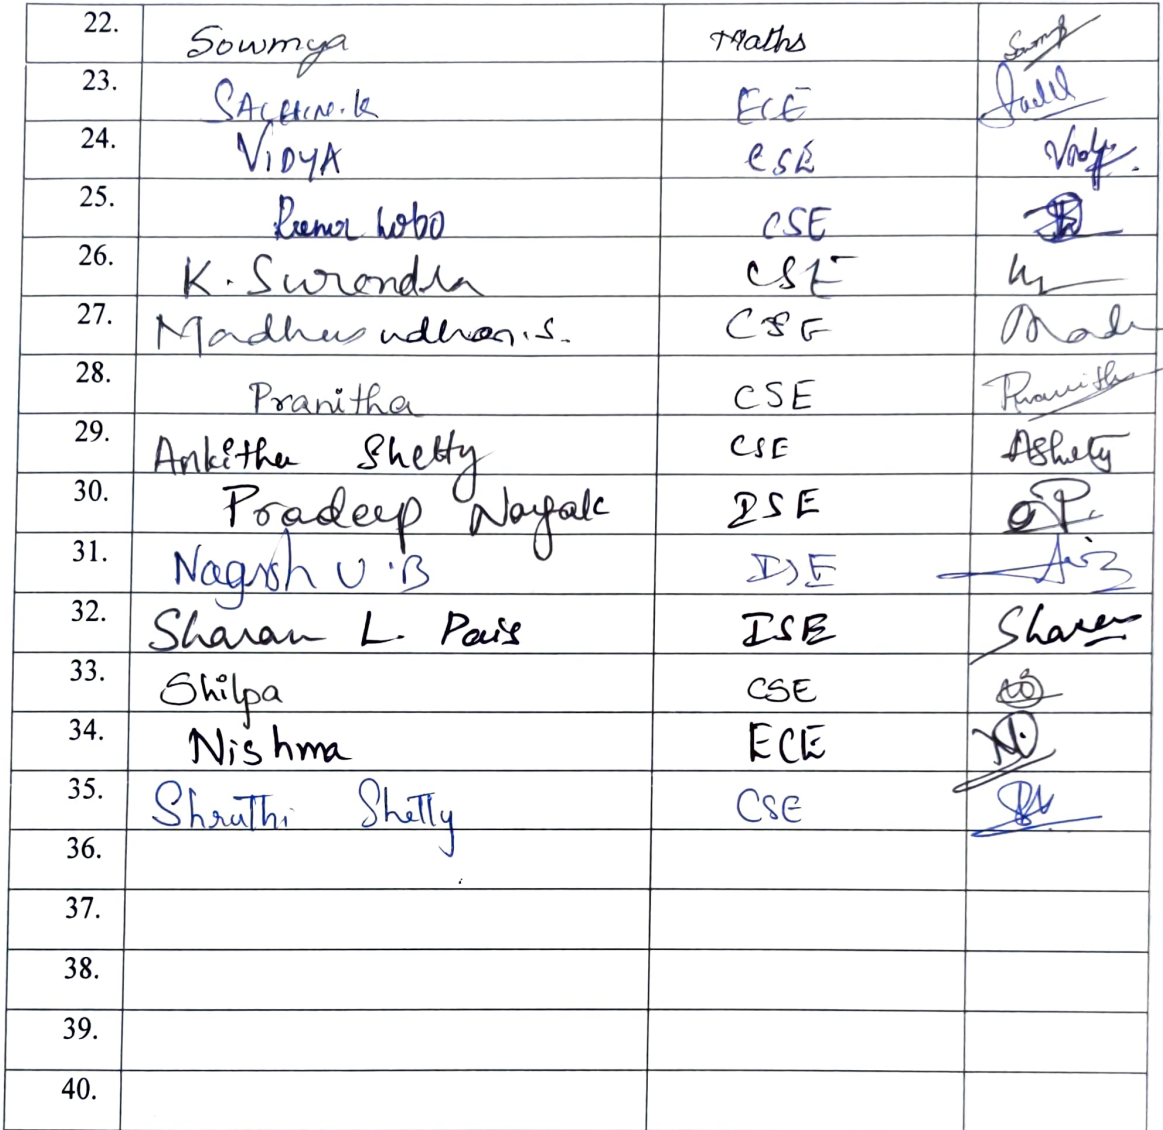 22. Sowmya Maths
23. SACHIN.K ECE
24. VIDYA CSE Vidy
25. Lobo CSE
26. K. Surendra CSE
27. Madhusudhan.S. CSE Madh
28. Pranitha CSE Pranitha
29. Ankitha Shetty CSE AShetty
30. Pradeep Nayak ISE P.
31. Nagesh U.B ISE
32. Sharan L. Pais ISE Sharan
33. Shilpa CSE
34. Nishma ECE
35. Shruthi Shetty CSE
36.
37.
38.
39.
40.